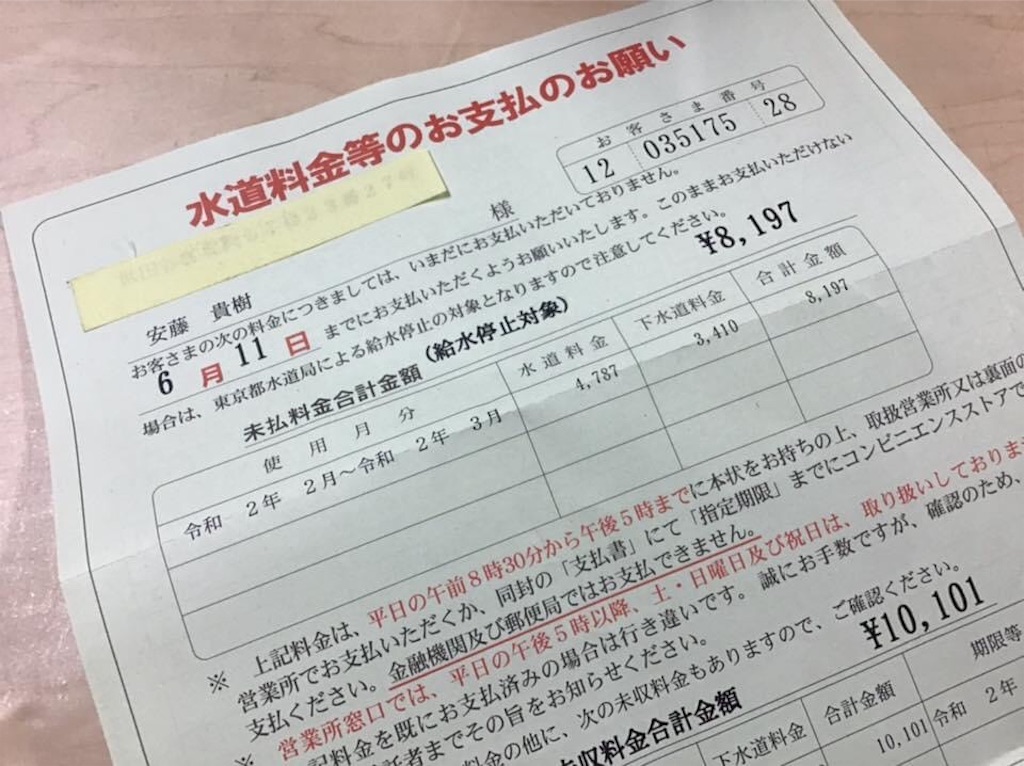 水道料金等のお支払のお願い
お客さま番号
12 035175 28
様
安藤 貴樹
お客さまの次の料金につきましては、いまだにお支払いただいておりません。
6月11日 までにお支払いただくようお願いいたします。このままお支払いただけない
場合は、東京都水道局による給水停止の対象となりますので注意してください。
未払料金合計金額 (給水停止対象) ¥8,197
使用月分 水道料金 下水道料金 合計金額
令和 2年 2月～令和 2年 3月 4,787 3,410 8,197
※ 上記料金は、平日の午前8時30分から午後5時までに本状をお持ちの上、取扱営業所又は裏面の
営業所でお支払いただくか、同封の「支払書」にて「指定期限」までにコンビニエンスストアで
支払ください。金融機関及び郵便局ではお支払できません。
※ 営業所窓口では、平日の午後5時以降、土・日曜日及び祝日は、取り扱いしておりま
記料金を既にお支払済みの場合は行き違いです。誠にお手数ですが、確認のため、
託者までその旨をお知らせください。
料金の他に、次の未収料金もありますので、ご確認ください。
収料金合計金額 ¥10,101
下水道料金 合計金額 期限等
10,101 令和 2年